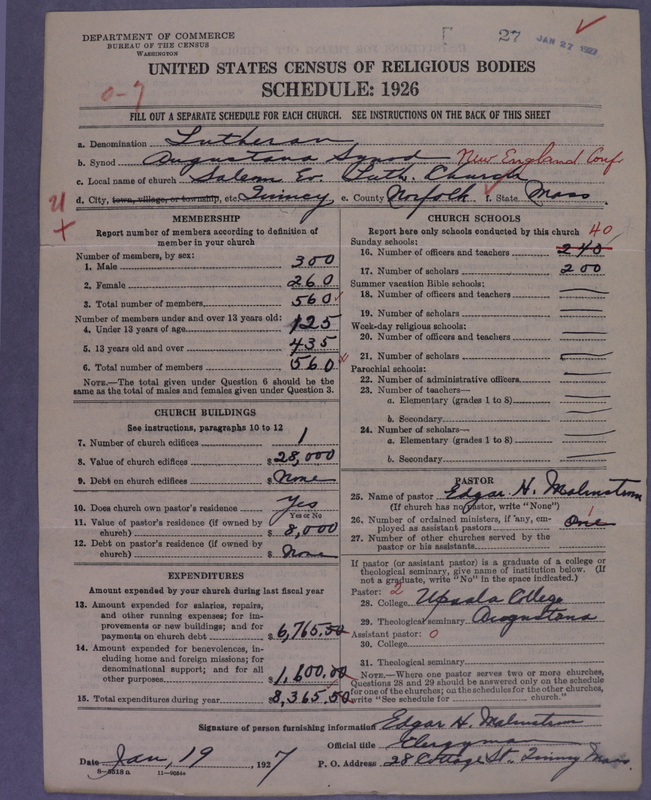 DEPARTMENT OF COMMERCE
BUREAU OF THE CENSUS
WASHINGTON
27 JAN 27 1927
UNITED STATES CENSUS OF RELIGIOUS BODIES
SCHEDULE: 1926
0-7
FILL OUT A SEPARATE SCHEDULE FOR EACH CHURCH. SEE INSTRUCTIONS ON THE BACK OF THIS SHEET
a. Denomination Lutheran
b. Synod Augustana Synod New England Conf
c. Local name of church Salem Ev. Luth. Church
d. City, town, village, or township, etc. Quincy e. County Norfolk f. State Mass.
MEMBERSHIP
Report number of members according to definition of member in your church
Number of members, by sex:
1. Male 300
2. Female 260
3. Total number of members 560
Number of members under and over 13 years old:
4. Under 13 years of age 125
5. 13 years old and over 435
6. Total number of members 560
NOTE.—The total given under Question 6 should be the
same as the total of males and females given under Question 3.
CHURCH BUILDINGS
See instructions, paragraphs 10 to 12
7. Number of church edifices 1
8. Value of church edifices $28,000
9. Debt on church edifices $None
10. Does church own pastor's residence Yes
Yes or No
11. Value of pastor's residence (if owned by
church) $8,000
12. Debt on pastor's residence (if owned by
church) $None
EXPENDITURES
Amount expended by your church during last fiscal year
13. Amount expended for salaries, repairs,
and other running expenses; for im-
provements or new buildings; and for
payments on church debt $6,765.50
14. Amount expended for benevolences, in-
cluding home and foreign missions; for
denominational support; and for all
other purposes $1,600.00
15. Total expenditures during year $8,365.50
CHURCH SCHOOLS
Report here only schools conducted by this church 40
Sunday schools:
16. Number of officers and teachers 240
17. Number of scholars 200
Summer vacation Bible schools:
18. Number of officers and teachers
19. Number of scholars
Week-day religious schools:
20. Number of officers and teachers
21. Number of scholars
Parochial schools:
22. Number of administrative officers
23. Number of teachers—
a. Elementary (grades 1 to 8)
b. Secondary
24. Number of scholars—
a. Elementary (grades 1 to 8)
b. Secondary
PASTOR
25. Name of pastor Edgar H. Malmstrom
(If church has no pastor, write "None")
26. Number of ordained ministers, if any, em-
ployed as assistant pastors One
27. Number of other churches served by the
pastor or his assistants
If pastor (or assistant pastor) is a graduate of a college or
theological seminary, give name of institution below. (If
not a graduate, write "No" in the space indicated.)
Pastor: 2
28. College Upsala College
29. Theological seminary Augustana
Assistant pastor: 0
30. College
31. Theological seminary
NOTE.—Where one pastor serves two or more churches,
Questions 28 and 29 should be answered only on the schedule
for one of the churches; on the schedules for the other churches,
write "See schedule for church."
Signature of person furnishing information Edgar H. Malmstrom
Official title Clergyman
Date Jan, 19, 1927 P. O. Address 28 Cottage St., Quincy Mass.
8-5518 a 11-9034